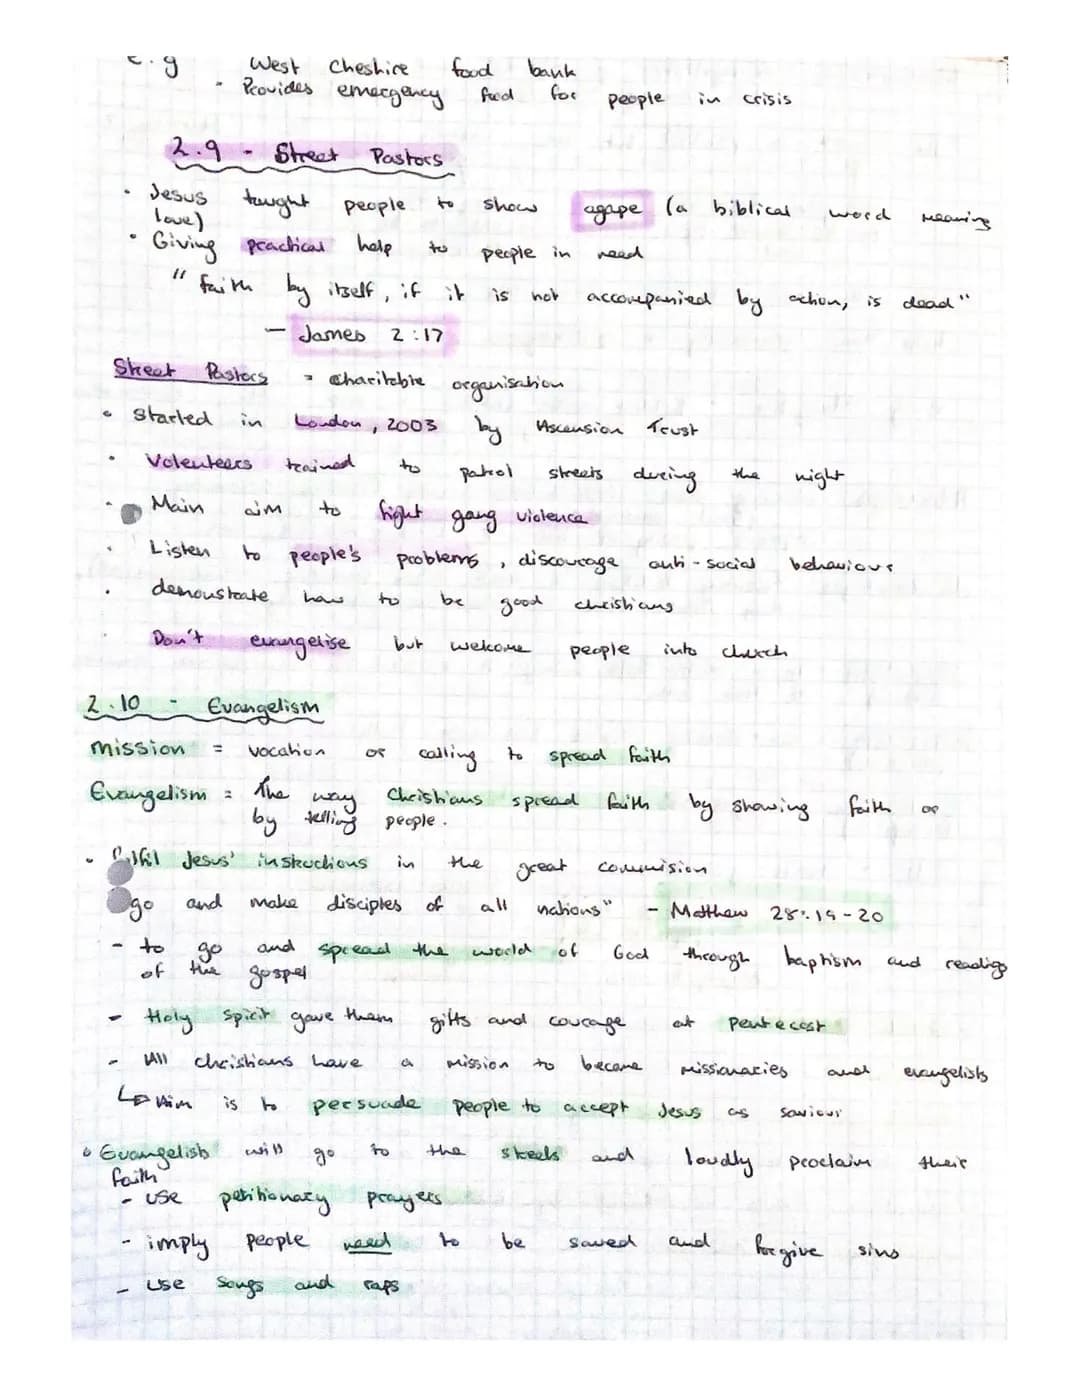 e.g West Cheshire food bank
• Provides emergency food for people in crisis
2.9 - Street Pastors
• Jesus taught people to show agape (a biblical word meaning
love)
• Giving practical help to people in need
"faith by itself, if it is not accompanied by action, is dead"
— James 2:17
Street Pastors = charitable organisation
• started in London, 2003 by Ascension Trust
• Volenteers trained to patrol streets during the night
• Main aim to fight gang violence
• Listen to people's problems, discourage anti-social behaviour
• demonstrate how to be good christians
Don't evangelise but welcome people into church
2.10 - Evangelism
mission = vocation or calling to spread faith
Evangelism = The way Christians spread faith by showing faith or
by telling people.
• Fulfil Jesus' instructions in the great commision
go and make disciples of all nations" - Matthew 28:19-20
- to go and spread the world of God through baptism and readings
of the gospel
- Holy Spirit gave them gifts and courage at Pentecost
- All christians have a mission to become missionaries and evangelists
↳ Aim is to persuade people to accept Jesus as saviour
• Evangelists will go to the streets and loudly proclaim their
faith
- use petitionary prayers
- imply people need to be saved and forgive sins
- use songs and raps